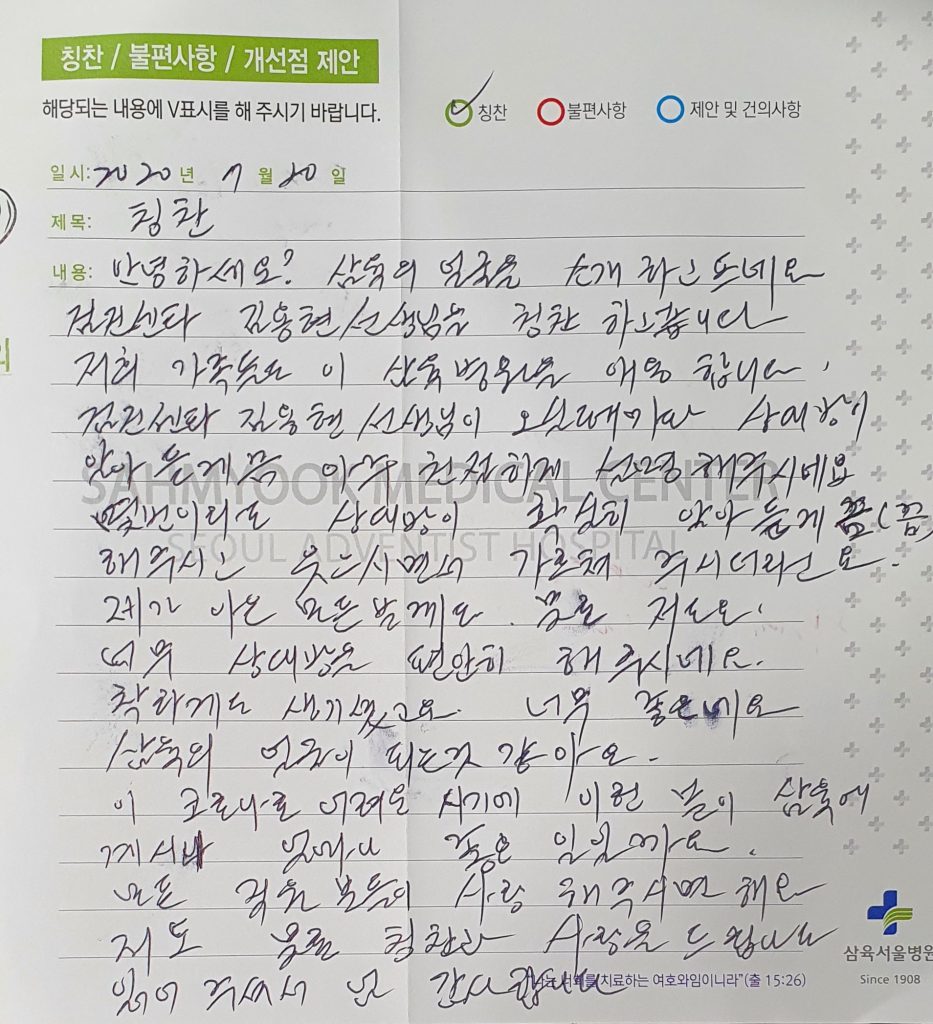 칭찬 / 불편사항 / 개선점 제안
해당되는 내용에 V표시를 해 주시기 바랍니다.
칭찬 불편사항 제안 및 건의사항
일시: 2020년 7월 20일
제목: 칭찬
내용: 안녕하세요? 삼육의 얼굴을 소개 하고 프네요
검진센타 김용현 선생님을 칭찬 하고 싶습니다
저희 가족들은 이 삼육병원을 애용 합니다.
검진센타 김용현 선생님이 오실때마다 상대방이
알아 듣게끔 아주 친절하게 설명해주시네요
몇번이라도 상대방이 확실히 알아 듣게 끔(끔)
해주시고 웃으시면서 가르쳐 주시더라고요.
제가 아는 모든분께도. 물론 저도요.
너무 상대방을 편안히 해 주시네요.
착하게도 생기셨고요. 너무 좋으네요
삼육의 얼굴이 되는것 같아요.
이 코로나로 어려운 시기에 이런 분이 삼육에
계시니 얼마나 좋은 일일까요.
모든 직원분들이 사랑 해주시면 해요
저도 물론 칭찬과 사랑을 드립니다
읽어 주셔서 감사합니다
SAHMYOOK MEDICAL CENTER
SEOUL ADVENTIST HOSPITAL
삼육서울병원
Since 1908
"나는 너희를 치료하는 여호와임이니라"(출 15:26)